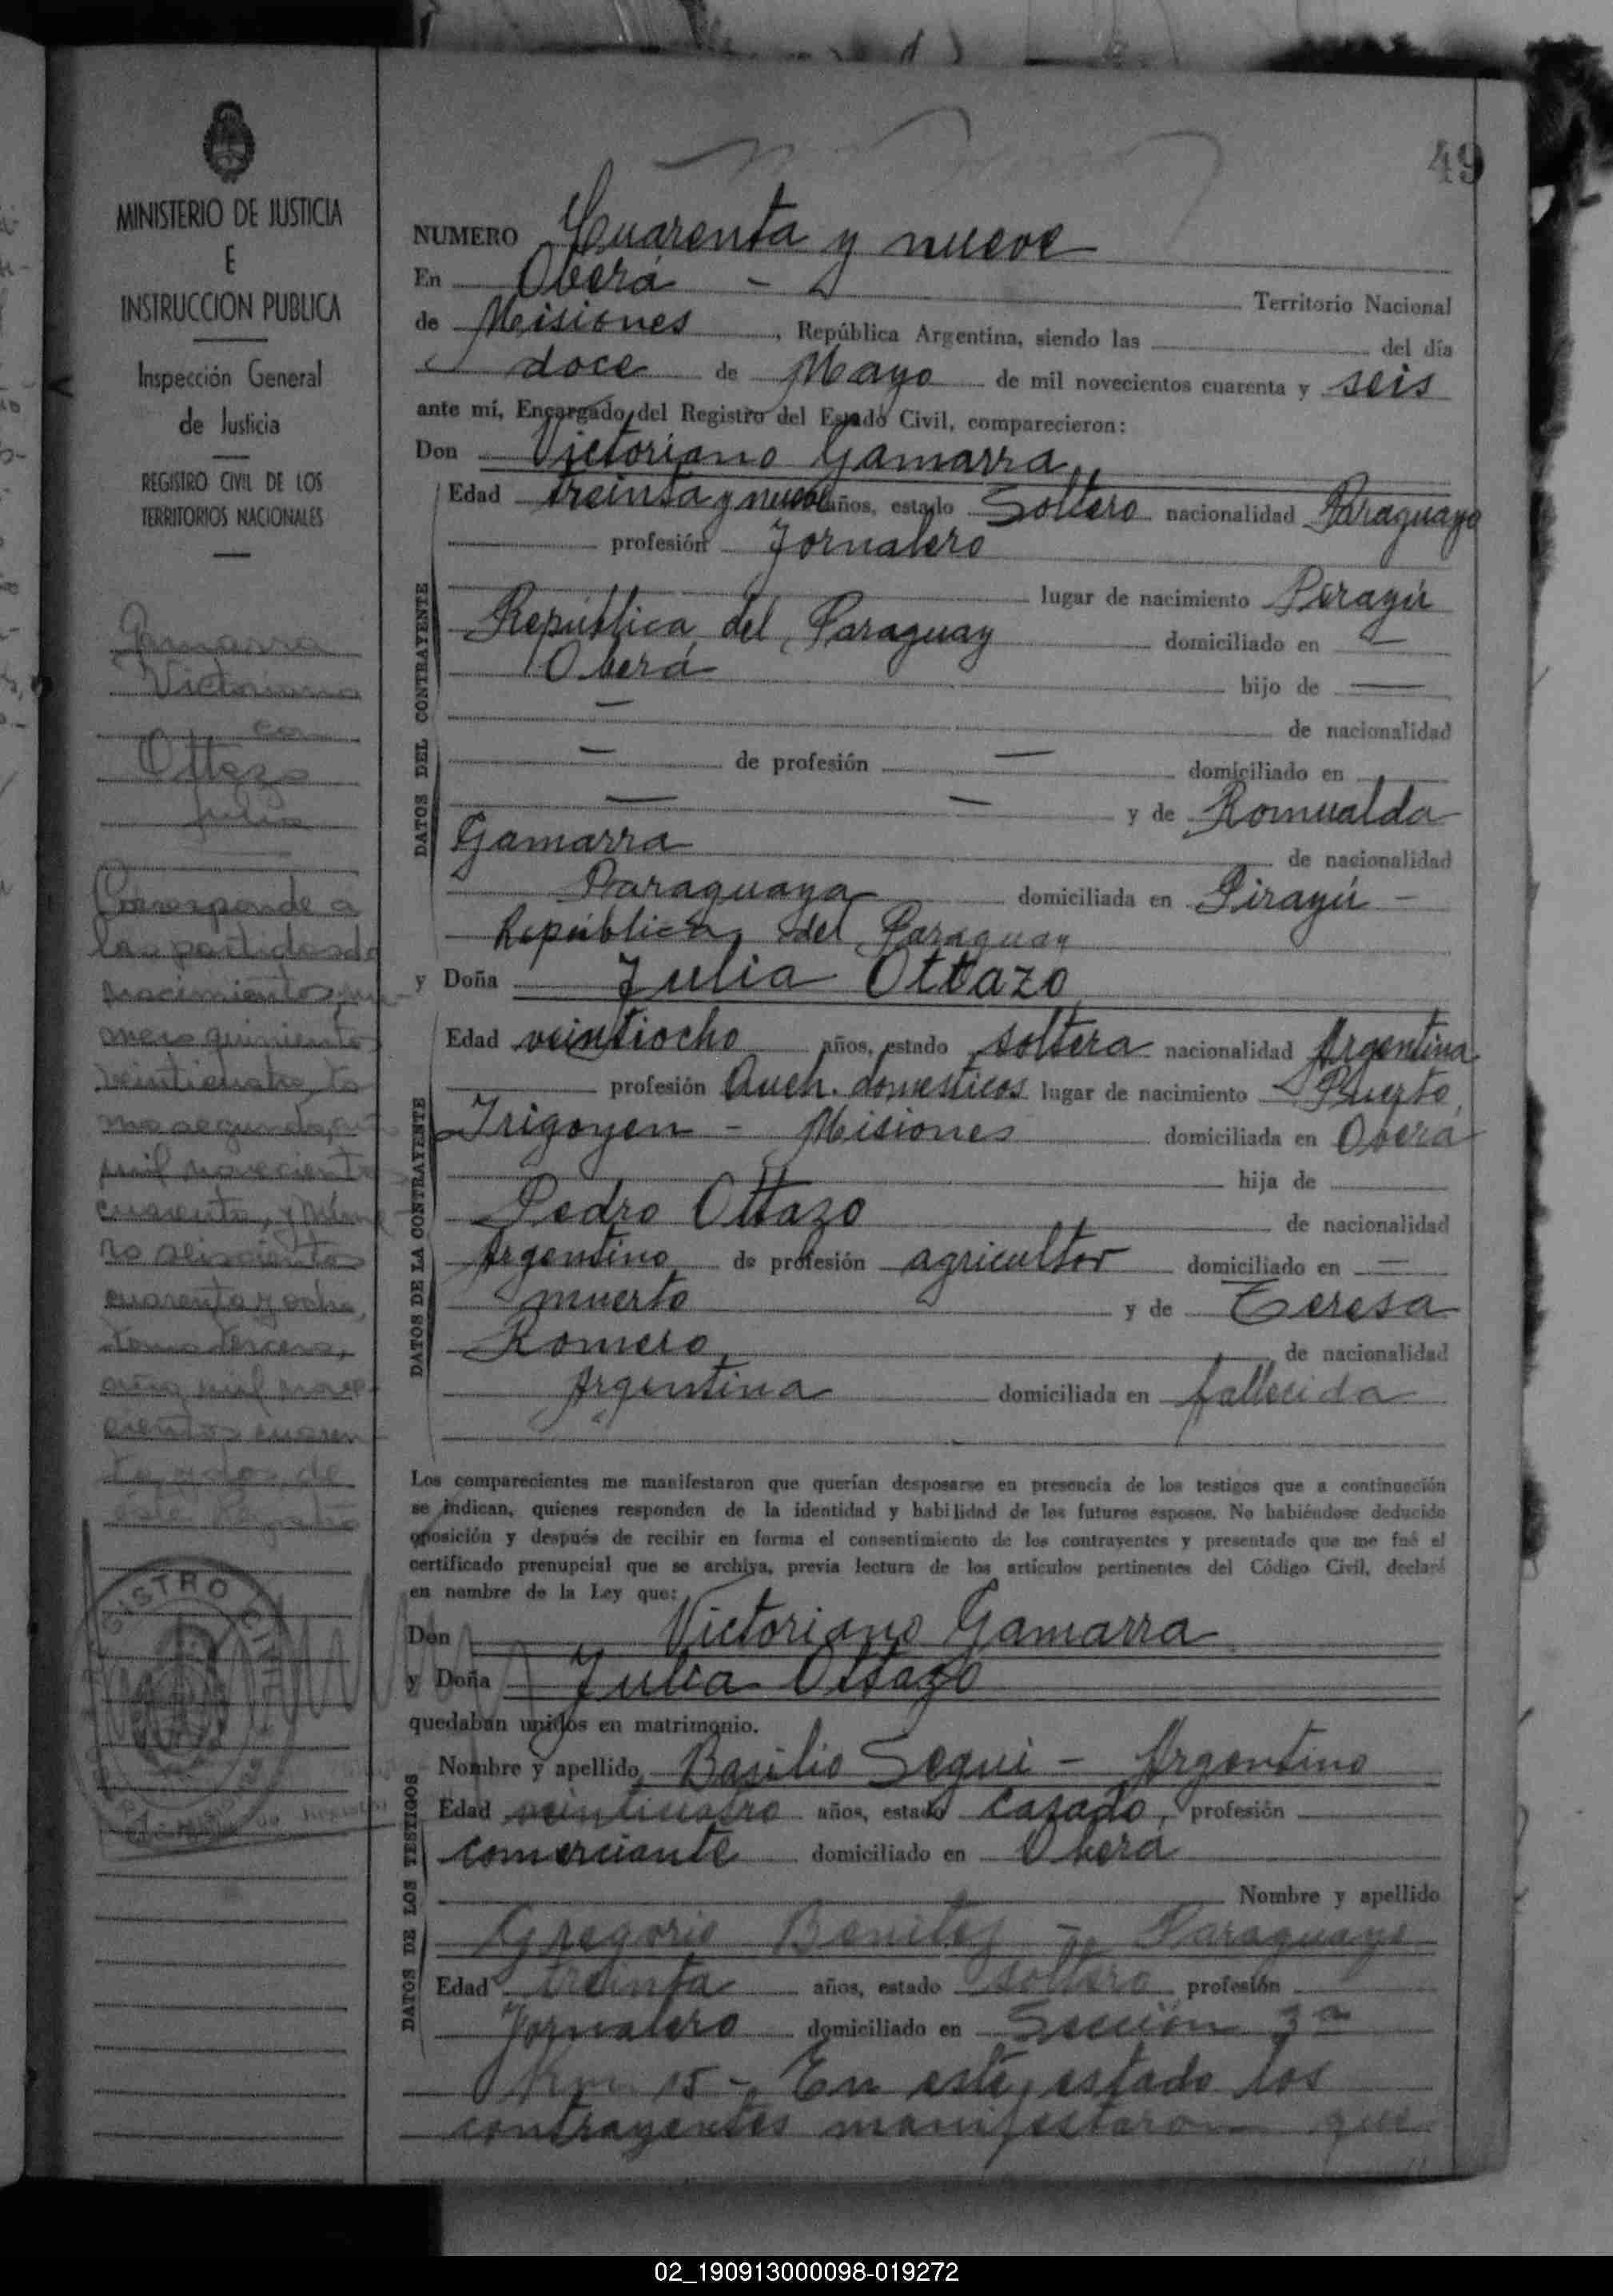 49
MINISTERIO DE JUSTICIA
E
INSTRUCCION PUBLICA
Inspección General
de Justicia
REGISTRO CIVIL DE LOS
TERRITORIOS NACIONALES
Gamarra
Victoriano
con
Ottazo
Julia
Corresponde a
las partidas de
nacimientos, nu-
mero quinientos
veinticuatro, to
mo segundo,
mil novecientos
cuarenta, y núme
ro seiscientos
cuarenta y ocho,
tomo tercero,
año mil nove-
cientos cuaren
ta y dos, de
este Registro
NUMERO Cuarenta y nueve
En Oberá - Territorio Nacional
de Misiones, República Argentina, siendo las del día
doce de Mayo de mil novecientos cuarenta y seis
ante mí, Encargado del Registro del Estado Civil, comparecieron:
Don Victoriano Gamarra
DATOS DEL CONTRAYENTE
Edad treinta y nueve años, estado Soltero nacionalidad Paraguayo
profesión Jornalero
lugar de nacimiento Pirayú
República del Paraguay domiciliado en —
Oberá hijo de —
— de nacionalidad
— de profesión — domiciliado en
— — y de Romualda
Gamarra de nacionalidad
Paraguaya domiciliada en Pirayú -
República del Paraguay
y Doña Julia Ottazo
DATOS DE LA CONTRAYENTE
Edad veintiocho años, estado soltera nacionalidad Argentina
profesión Queh. domesticos lugar de nacimiento Puerto
Irigoyen - Misiones domiciliada en Oberá
hija de
Pedro Ottazo de nacionalidad
Argentino de profesión agricultor domiciliado en —
muerto y de Teresa
Romero de nacionalidad
Argentina domiciliada en fallecida
Los comparecientes me manifestaron que querían desposarse en presencia de los testigos que a continuación
se indican, quienes responden de la identidad y habilidad de los futuros esposos. No habiéndose deducido
oposición y después de recibir en forma el consentimiento de los contrayentes y presentado que me fué el
certificado prenupcial que se archiva, previa lectura de los artículos pertinentes del Código Civil, declaré
en nombre de la Ley que:
Don Victoriano Gamarra
y Doña Julia Ottazo
quedaban unidos en matrimonio.
DATOS DE LOS TESTIGOS
Nombre y apellido Basilio Segui - Argentino
Edad veinticuatro años, estado casado, profesión
comerciante domiciliado en Oberá
Nombre y apellido
Gregorio Benitez - Paraguayo
Edad treinta años, estado soltero profesión
Jornalero domiciliado en Sección 3ª
Km 15 -. En este estado los
contrayentes manifestaron que
REGISTRO CIVIL
02_190913000098-019272